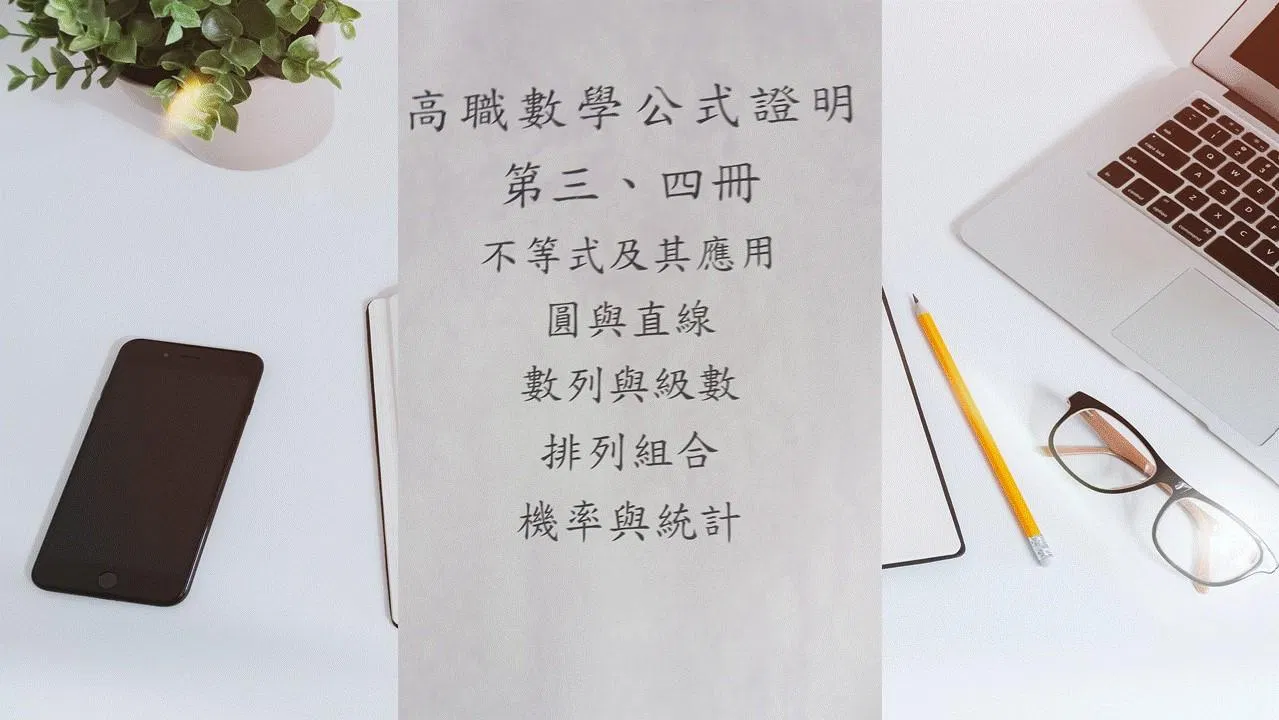 高職數學公式證明
第三、四冊
不等式及其應用
圓與直線
數列與級數
排列組合
機率與統計